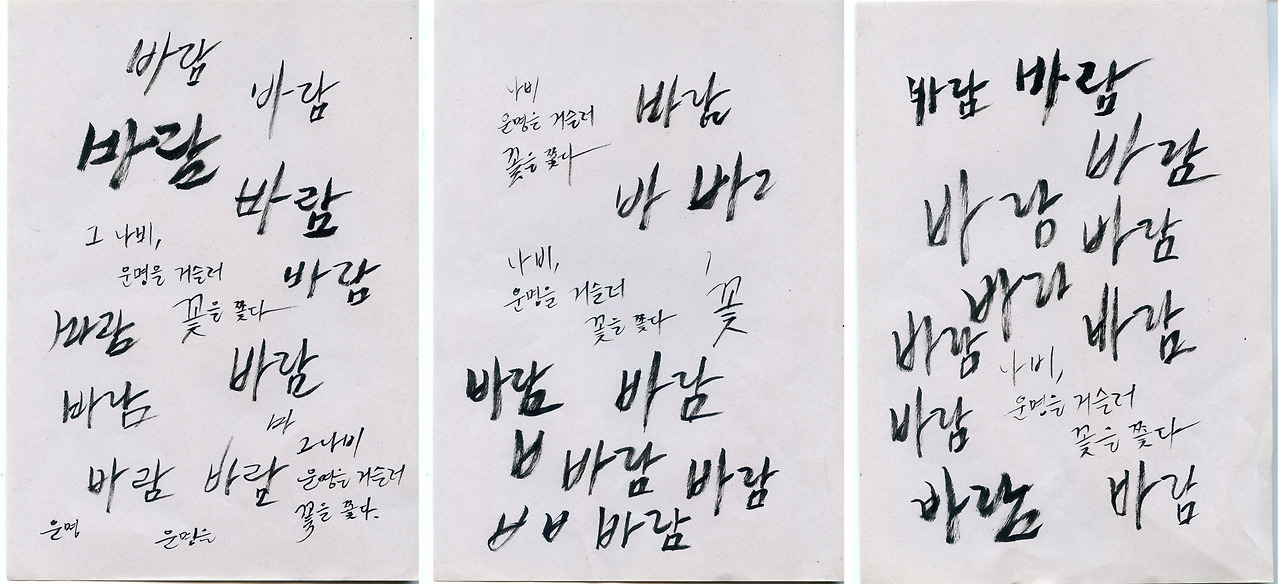 바람
바람
바람
바람
그 나비,
운명을 거슬러
꽃을 쫓다
바람
바람
바람
바람
바
그 나비
운명을 거슬러
꽃을 쫓다.
바람
바람
운명
운명을
나비
운명을 거슬러
꽃을 쫓다
바람
바 바
나비,
운명을 거슬러
꽃을 쫓다
꽃
바람 바람
ㅂ 바람 바람
ㅂ ㅂ 바람
바람 바람
바람
바람
바람
바라
바람
바람
나비,
운명을 거슬러
꽃을 쫓다
바람
바람
바람